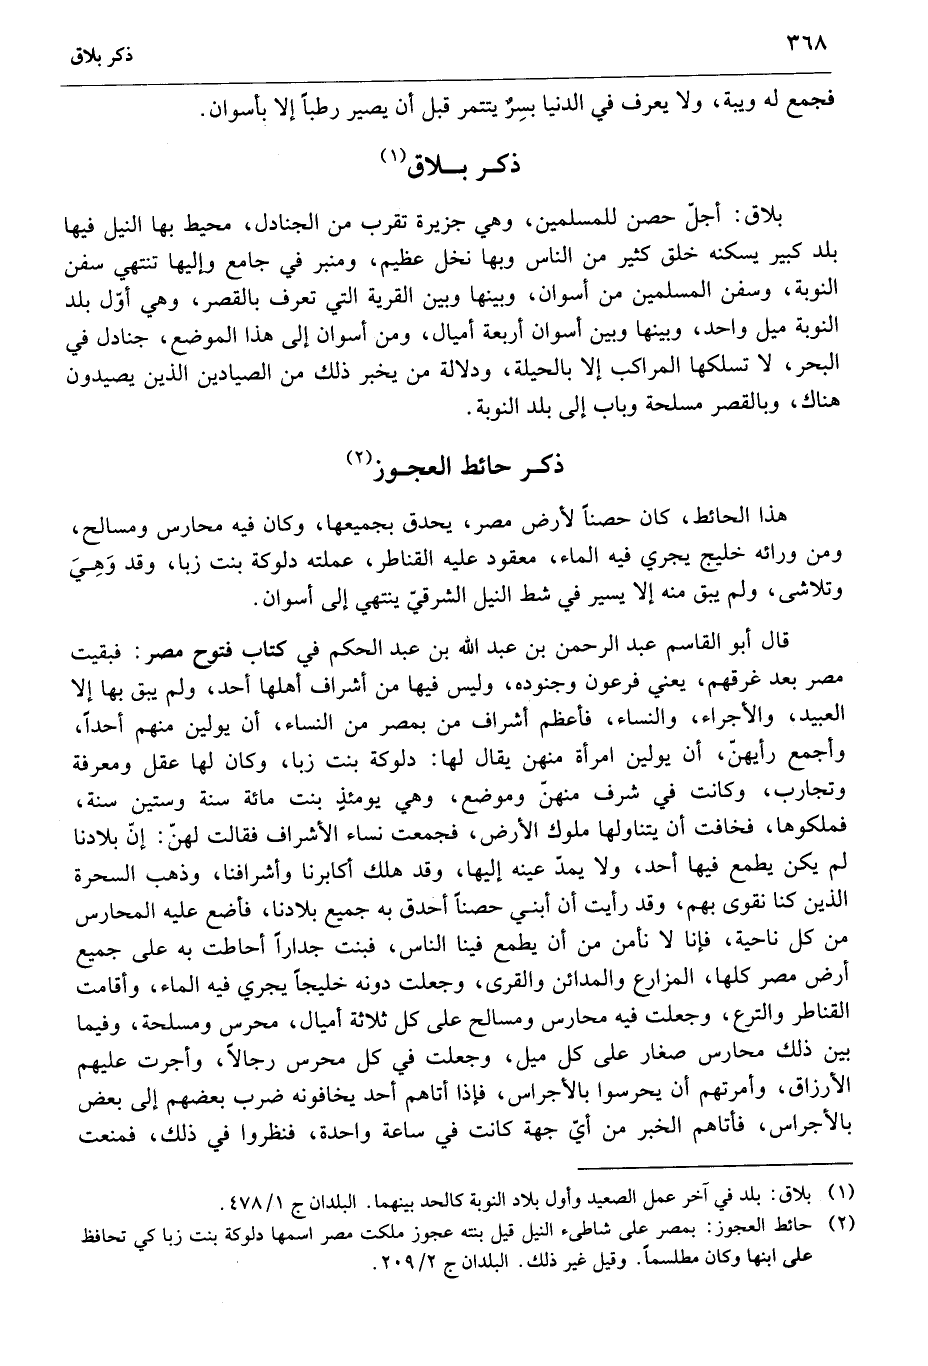 ٣٦٨
ذكر بلاق
فجمع له ويبة، ولا يعرف في الدنيا بسِرٌ يتتمر قبل أن يصير رطباً إلا بأسوان.
ذكـر بــلاق(١)
بلاق: أجلّ حصن للمسلمين، وهي جزيرة تقرب من الجنادل، محيط بها النيل فيها
بلد كبير يسكنه خلق كثير من الناس وبها نخل عظيم، ومنبر في جامع وإليها تنتهي سفن
النوبة، وسفن المسلمين من أسوان، وبينها وبين القرية التي تعرف بالقصر، وهي أوّل بلد
النوبة ميل واحد، وبينها وبين أسوان أربعة أميال، ومن أسوان إلى هذا الموضع، جنادل في
البحر، لا تسلكها المراكب إلا بالحيلة، ودلالة من يخبر ذلك من الصيادين الذين يصيدون
هناك، وبالقصر مسلحة وباب إلى بلد النوبة.
ذكـر حائط العجـوز(٢)
هذا الحائط، كان حصناً لأرض مصر، يحدق بجميعها، وكان فيه محارس ومسالح،
ومن ورائه خليج يجري فيه الماء، معقود عليه القناطر، عملته دلوكة بنت زبا، وقد وَهِـيَ
وتلاشى، ولم يبق منه إلا يسير في شط النيل الشرقيّ ينتهي إلى أسوان.
قال أبو القاسم عبد الرحمن بن عبد الله بن عبد الحكم في كتاب فتوح مصر: فبقيت
مصر بعد غرقهم، يعني فرعون وجنوده، وليس فيها من أشراف أهلها أحد، ولم يبق بها إلا
العبيد، والأجراء، والنساء، فأعظم أشراف من بمصر من النساء، أن يولين منهم أحداً،
وأجمع رأيهنّ، أن يولين امرأة منهن يقال لها: دلوكة بنت زبا، وكان لها عقل ومعرفة
وتجارب، وكانت في شرف منهنّ وموضع، وهي يومئذٍ بنت مائة سنة وستين سنة،
فملكوها، فخافت أن يتناولها ملوك الأرض، فجمعت نساء الأشراف فقالت لهنّ: إنّ بلادنا
لم يكن يطمع فيها أحد، ولا يمدّ عينه إليها، وقد هلك أكابرنا وأشرافنا، وذهب السحرة
الذين كنا نقوى بهم، وقد رأيت أن أبنـي حصناً أحدق به جميع بلادنا، فأضع عليه المحارس
من كل ناحية، فإنا لا نأمن من أن يطمع فينا الناس، فبنت جداراً أحاطت به على جميع
أرض مصر كلها، المزارع والمدائن والقرى، وجعلت دونه خليجاً يجري فيه الماء، وأقامت
القناطر والترع، وجعلت فيه محارس ومسالح على كل ثلاثة أميال، محرس ومسلحة، وفيما
بين ذلك محارس صغار على كل ميل، وجعلت في كل محرس رجالاً، وأجرت عليهم
الأرزاق، وأمرتهم أن يحرسوا بالأجراس، فإذا أتاهم أحد يخافونه ضرب بعضهم إلى بعض
بالأجراس، فأتاهم الخبر من أيّ جهة كانت في ساعة واحدة، فنظروا في ذلك، فمنعت
(١) بلاق: بلد في آخر عمل الصعيد وأول بلاد النوبة كالحد بينهما. البلدان ج ٤٧٨/١.
(٢) حائط العجوز: بمصر على شاطىء النيل قيل بنته عجوز ملكت مصر اسمها دلوكة بنت زبا كي تحافظ
على ابنها وكان مطلسماً. وقيل غير ذلك. البلدان ج ٢٠٩/٢.